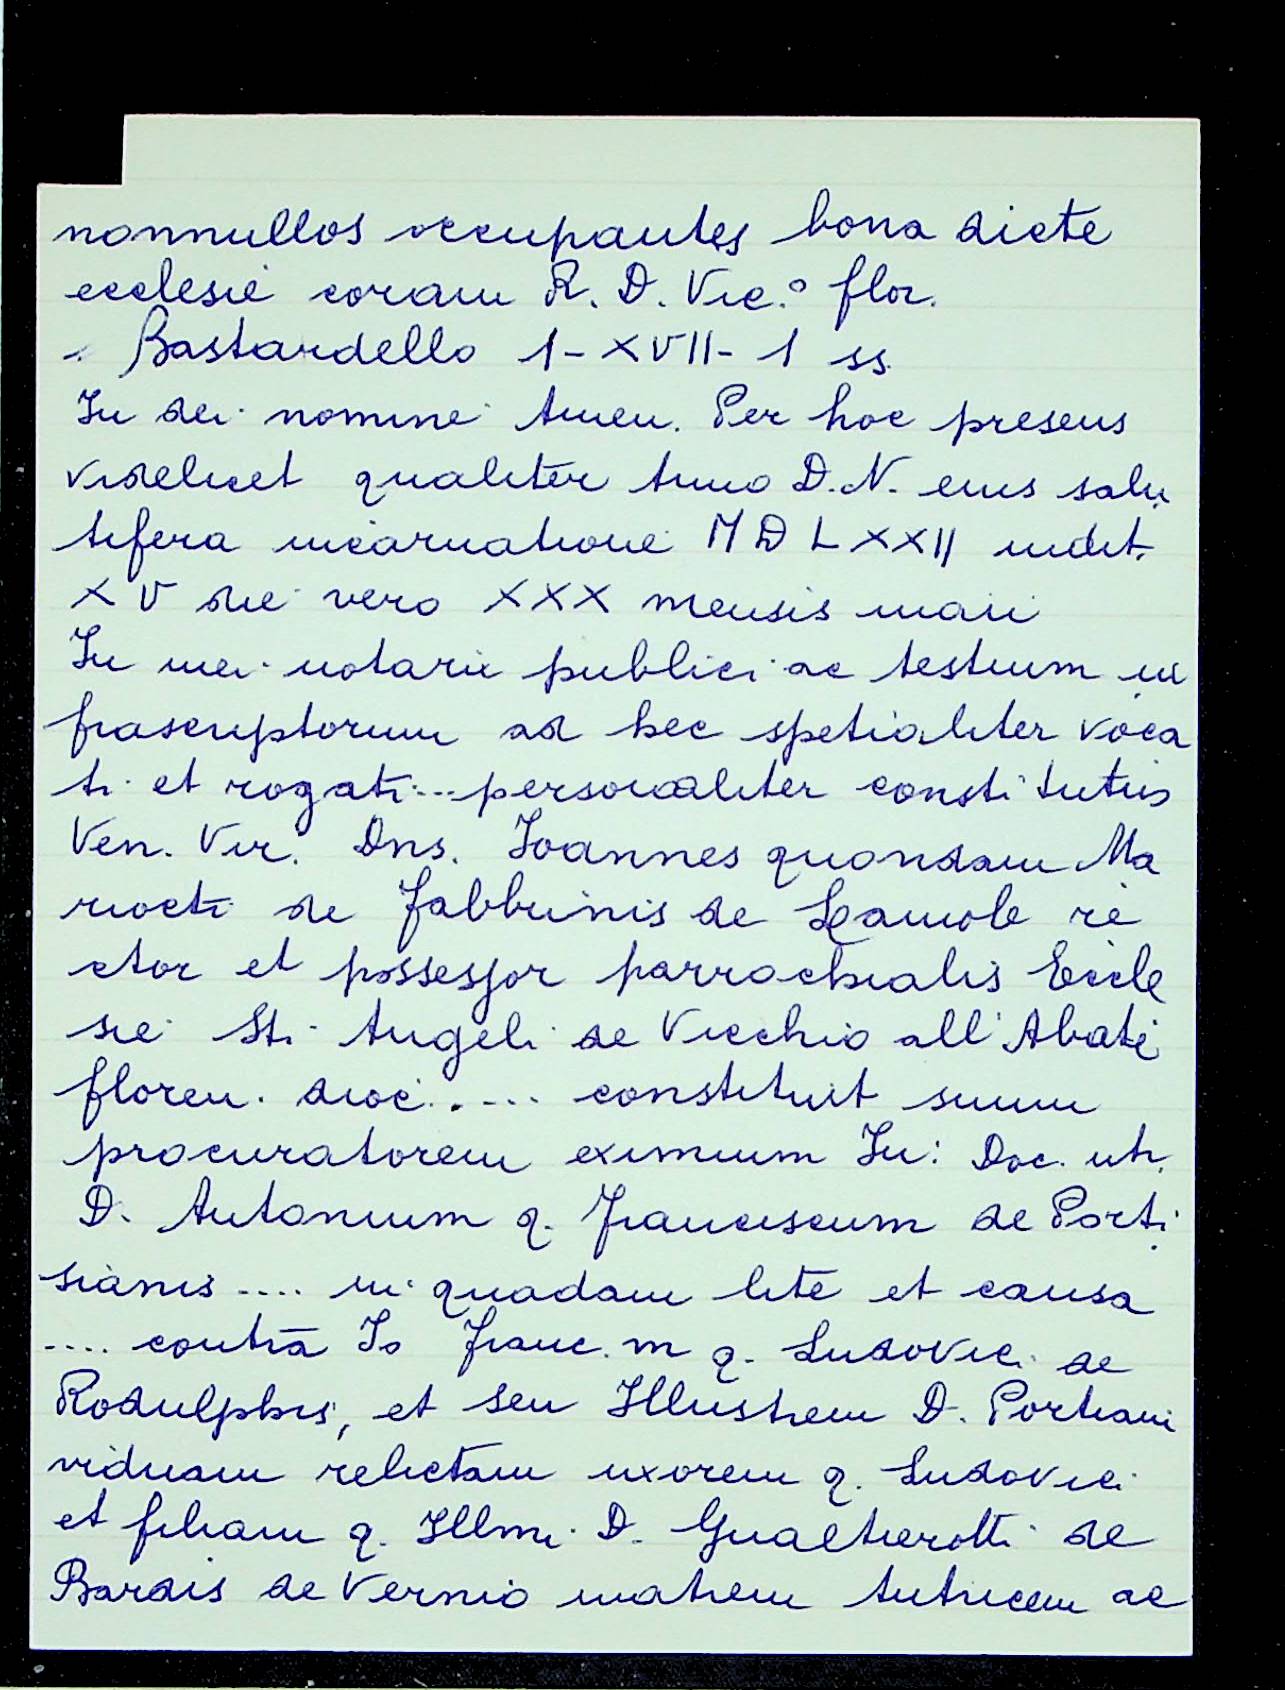 nonnullos occupantes bona dicte
ecclesie coram R. D. Vic.° flor.
Bastardello 1-XVII-1 ss.
In dei nomine Amen. Per hoc presens
videlicet qualiter Anno D. N. eius salu
tifera incarnatione MDLXXII indit.
XV die vero XXX mensis maii
In mei notarii publici ac testium in
frascriptorum ad hec spetialiter voca
ti et rogati... personaliter constitutus
Ven. Vir. Dns. Ioannes quondam Ma
riocti de Fabbrinis de Lamole re
ctor et possessor parrochialis Eccle
sie Sti Angeli de Vicchio all'Abate
floren. dioc..... constituit suum
procuratorem eximium Iu: Doc. utr.
D. Antonium q. Franciscum de Porti
sianis .... in quadam lite et causa
.... contra Io Franc.m q. Ludovici de
Rodulphis, et seu Illustrem D. Portiam
viduam relictam uxorem q. Ludovici
et filiam q. Illmi D. Gualtierotti de
Bardis de Vernio matrem tutricem ac